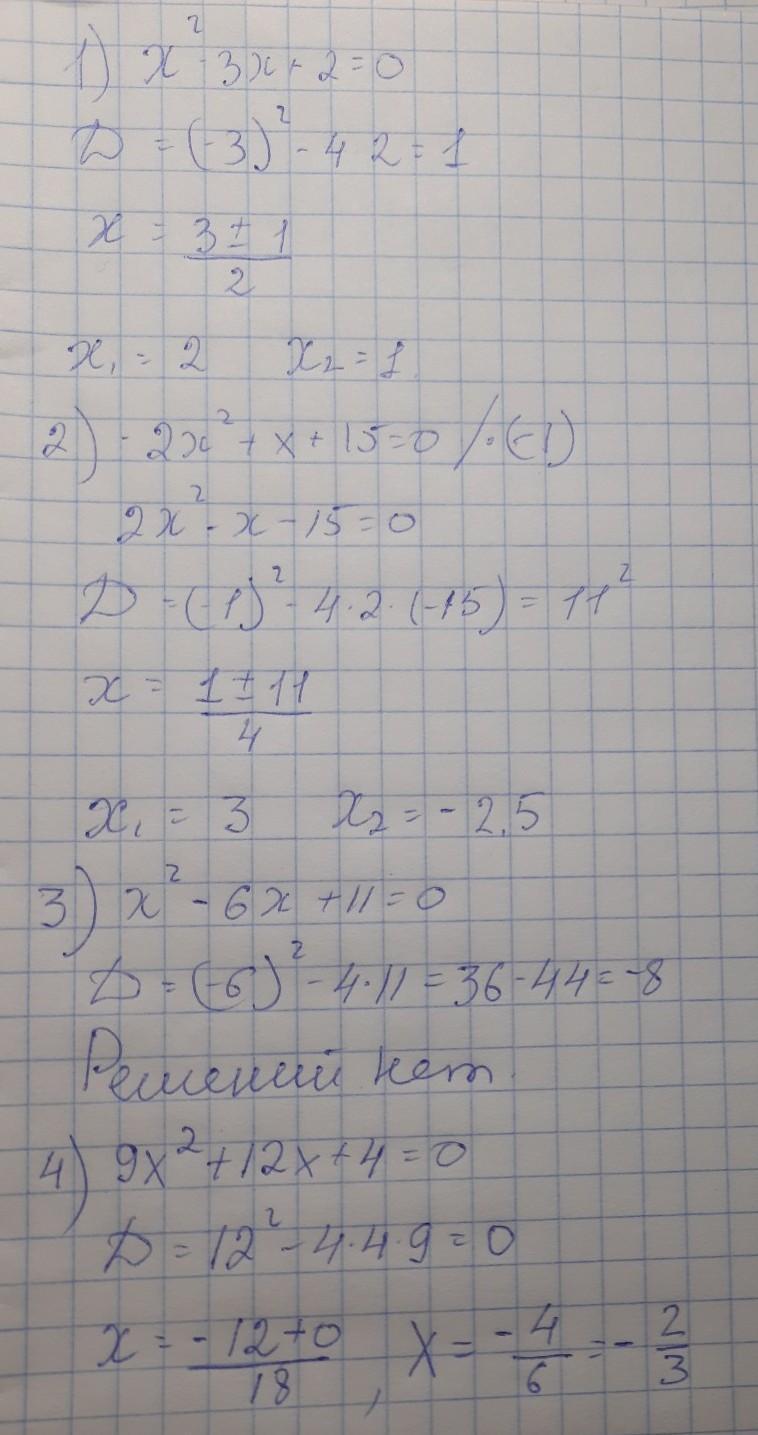 1) x² - 3x + 2 = 0
D = (-3)² - 4 2 = 1
x = (3 ± 1)/2
x₁ = 2 x₂ = 1
2) -2x² + x + 15 = 0 /·(-1)
2x² - x - 15 = 0
D = (-1)² - 4·2·(-15) = 11²
x = (1 ± 11)/4
x₁ = 3 x₂ = -2,5
3) x² - 6x + 11 = 0
D = (-6)² - 4·11 = 36 - 44 = -8
Решений нет.
4) 9x² + 12x + 4 = 0
D = 12² - 4·4·9 = 0
x = (-12 + 0)/18, x = -4/6 = -2/3